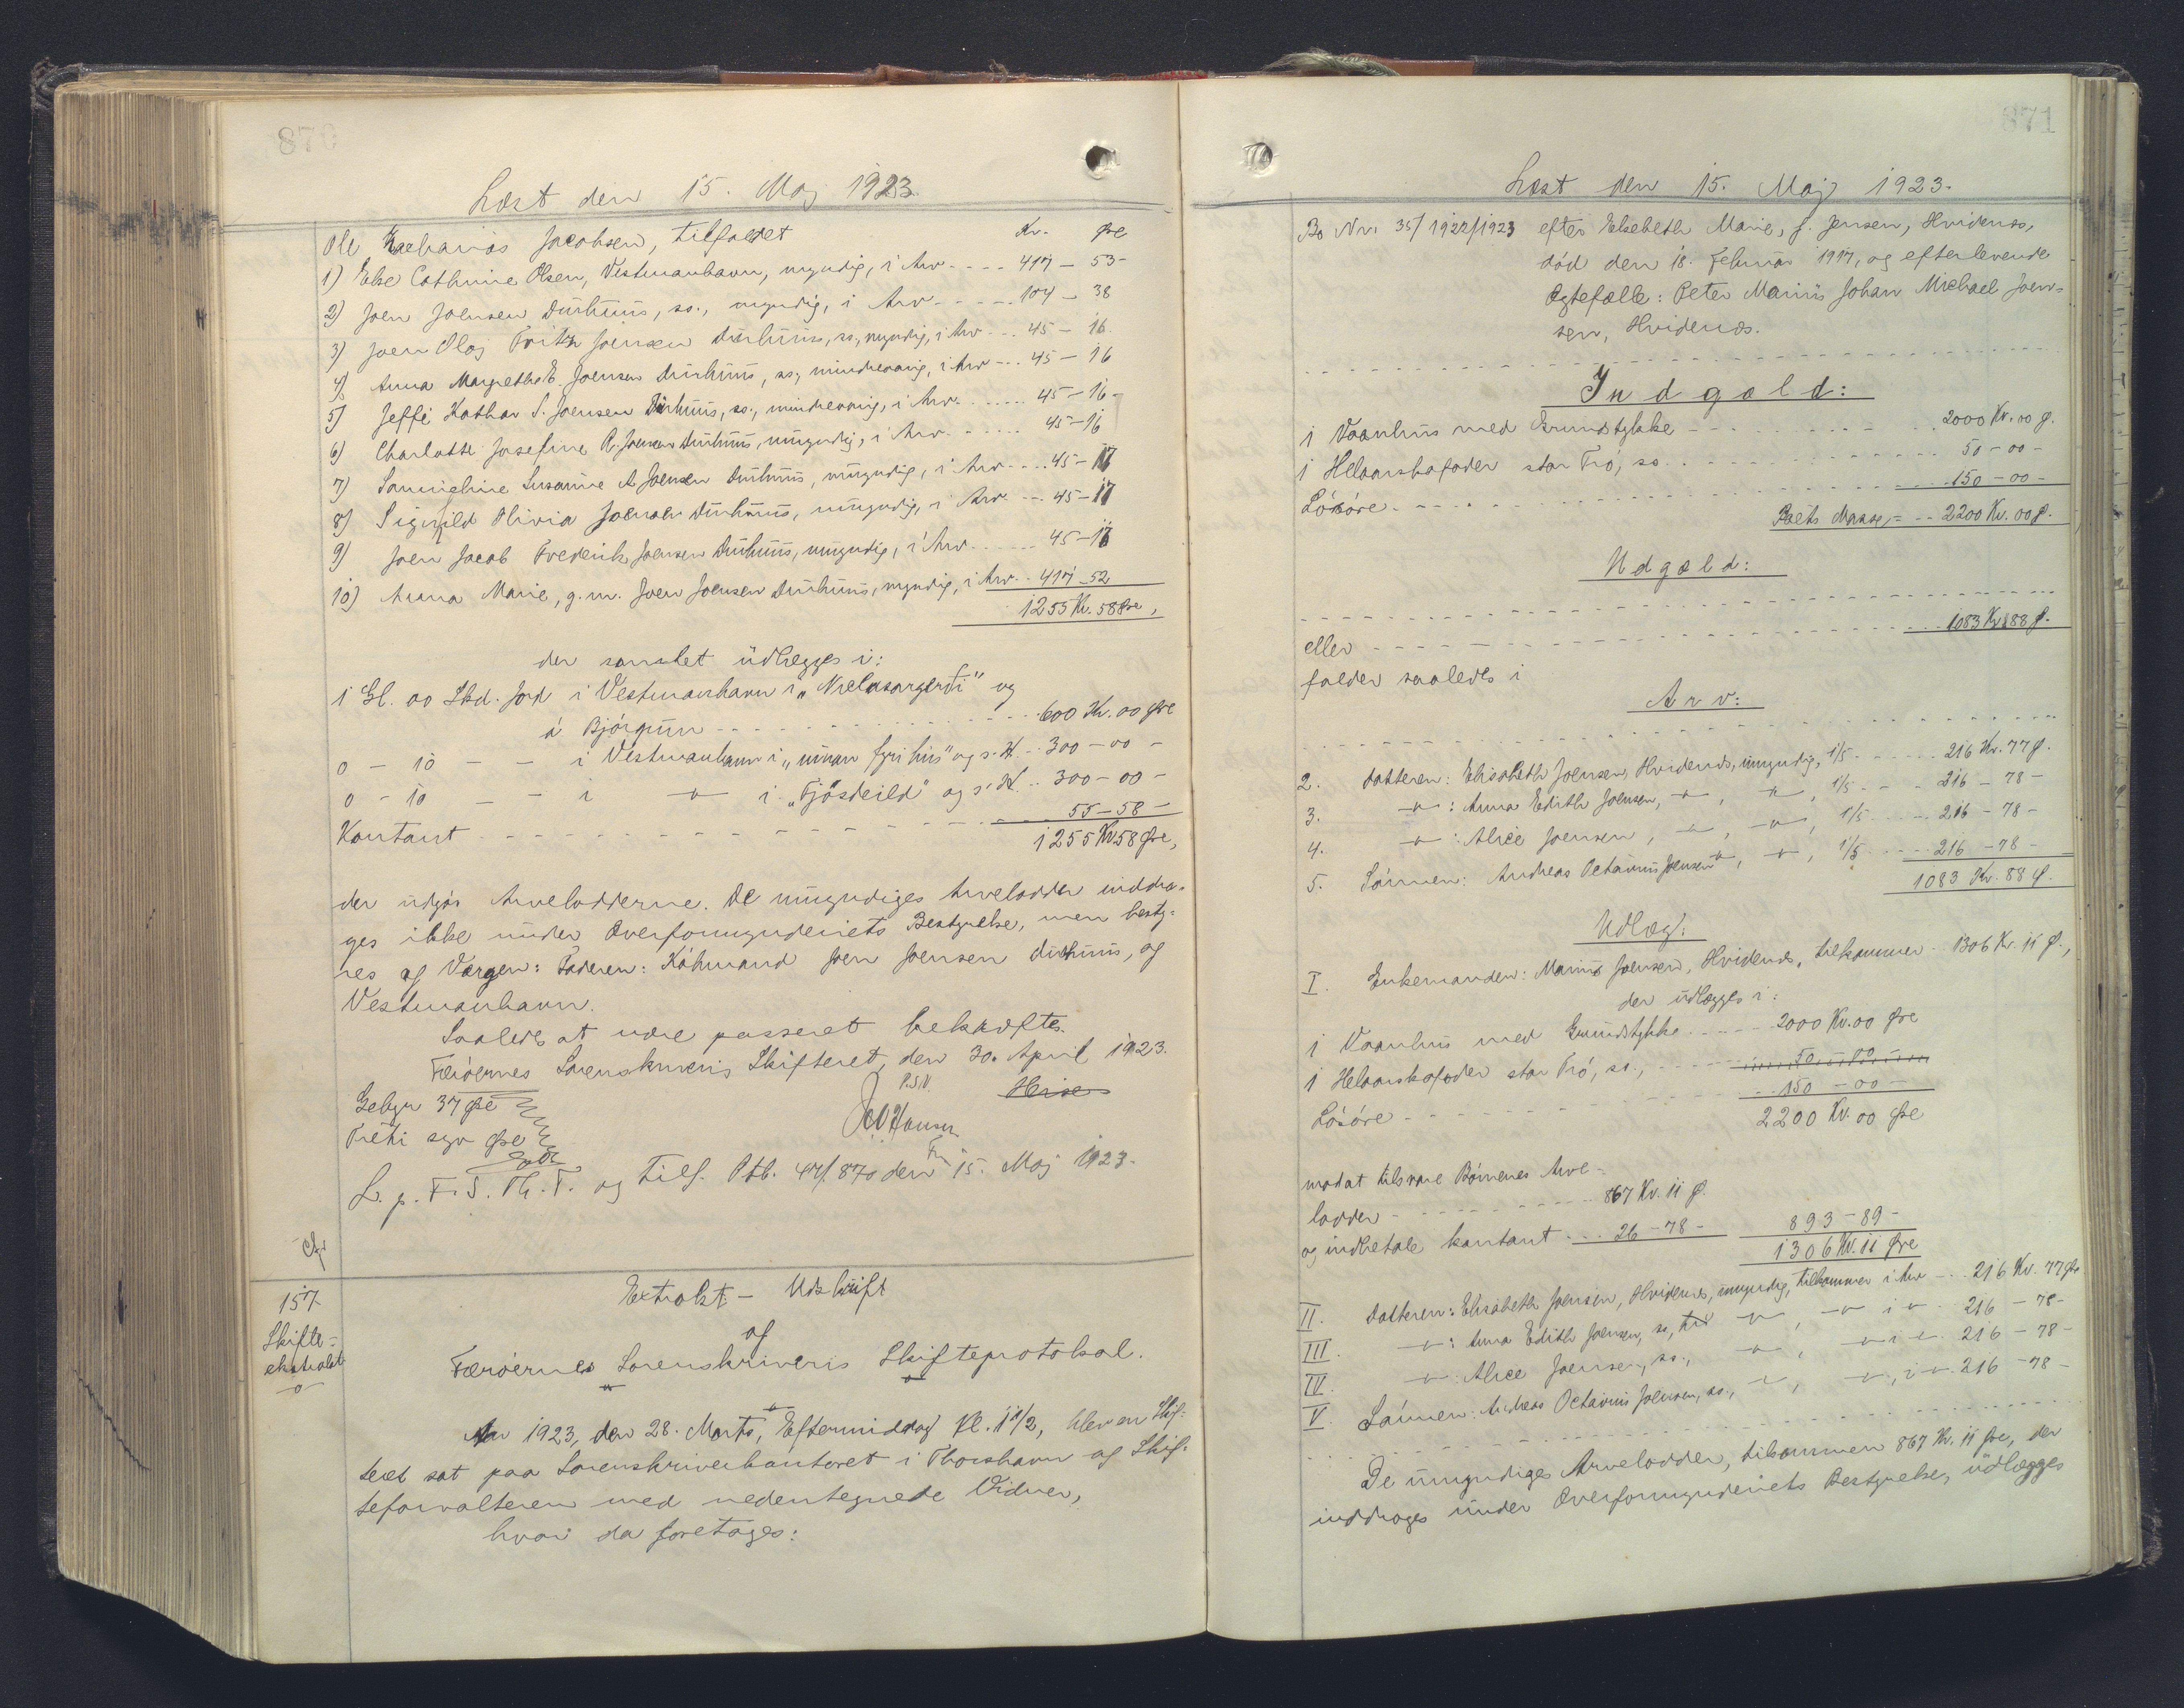 870
Læst den 15. Maj 1923.
Ole Zacharias Jacobsen, tilfaldet Kr. Øre
1) Else Cathrine Olsen, Vestmanhavn, myndig, i Arv - - - - 417 - 53 -
2) Joen Joensen Dürhuus, ss., myndig, i Arv - - - - 104 - 38
3) Joen Olaj Fritz Joensen Dürhuus, ss, myndig, i Arv - - - 45 - 16
4) Anna Margrethe E. Joensen Dürhuus, ss., mindreaarig, i Arv - - - 45 - 16
5) Jeffi Kathar S. Joensen Dürhuus, ss., mindreaarig, i Arv - - - - 45 - 16 -
6) Charlotte Josefine R. Joensen Dürhuus, umyndig, i Arv - - - - 45 - 16
7) Sannigline Susanne A Joensen Dürhuus, umyndig, i Arv - - - 45 - 17
8) Sigvild Olivia Joensen Dürhuus, umyndig, i Arv - - - 45 - 17
9) Joen Jacob Frederik Joensen Dürhuus, umyndig, i Arv - - - - 45 - 17
10) Anna Marie, g.m. Joen Joensen Dürhuus, myndig, i Arv - - 417 - 52
1255 Kr. 58 Øre,
der samlet udlægges i:
1 Gl. 00 Skd. Jord i Vestmanhavn i og
á Bjórgum - - - - - - 600 Kr. 00 Øre
0 - 10 - - i Vestmanhavn i "uman fyri hus" og s. St. - - 300 - 00 -
0 - 10 - - i -"- i "Fjósdeild" og s. St. - - 300 - 00 -
Kontant - - - - - - - 55 - 58 -
1255 Kr. 58 Øre,
der udgør Arvelodderne. De umyndiges Arvelodder inddra-
ges ikke under Overformynderiets Bestyrelse, men besty-
res af Værgen: Faderen: Købmand Joen Joensen Dürhuus, og
Vestmanhavn.
Saaledes at være passeret bekræftes.
Færøernes Sorenskriveris Skifteret, den 30. April 1923.
P.S.V.
Heise
Gebyr 37 Øre
Treti syv Øre
Hansen
Fm
L. p. F. S. Th. T. og Tilf. Ptb. 47/870 den 15. Maj 1923.
157
Skifte-
ekstrakt
Extrakt - Udskrift
af
Færøernes Sorenskriveris Skifteprotokol.
Aar 1923, den 28. Marts, Eftermiddag Kl. 1 1/2, blev en Skif-
teret sat paa Sorenskriverkontoret i Thorshavn af Skif-
teforvalteren med nedentegnede Vidner,
hvor da foretages:
871
Læst den 15. Maj 1923.
Bo Nr. 35/1922/1923 efter Elsebeth Marie, f. Jensen, Hvidenæs,
død den 18. Februar 1917, og efterlevende
Ægtefælle: Peter Marius Johan Michael Joen-
sen, Hvidenæs.
Indgæld:
1 Vaanhus med Grundstykke - - - - 2000 Kr. 00 Ø.
1 Helaarskofoder stor Trø, ss. - - - - 50 - 00 -
Løsøre - - - - - 150 - 00 -
Boets Masse = - - 2200 Kr. 00 Ø.
Udgæld:
eller - - - - - 1083 Kr. 88 Ø.
falder saaledes i
Arv:
2. Datteren: Elisabeth Joensen, Hvidenæs, umyndig, 1/5 - - - 216 Kr. 77 Ø.
3. -"- : Anna Edith Joensen, -"- , -"- , 1/5 - - - 216 - 78 -
4. -"- : Alice Joensen, -"- , -"- , 1/5 - - - 216 - 78 -
5. Sønnen: Andreas Octavius Joensen -"- , -"- , 1/5 - - - 216 - 78 -
1083 Kr. 88 Ø.
Udlæg:
I. Enkemanden: Marius Joensen, Hvidenæs, tilkommer - - 1306 Kr. 11 Ø.,
der udlægges i:
1 Vaanhus med Grundstykke - - - - 2000 Kr. 00 Øre
1 Helaarskofoder stor Trø, ss., - - - 50 - 00 -
Løsøre - - - - - 150 - 00 -
2200 Kr. 00 Øre
modat tilsvare Børnenes Arve-
lodder - - - - - 867 Kr. 11 Ø.
og indbetale kontant - - - 26 - 78 - 893 - 89 -
1306 Kr. 11 Øre
II. Datteren: Elisabeth Joensen, Hvidenæs, umyndig, tilkommer i Arv - - 216 Kr. 77 Øre
III. -"- : Anna Edith Joensen, ss, -"- , -"- i -"- 216 - 78 -
IV. -"- : Alice Joensen, ss., -"- , -"- i -"- 216 - 78 -
V. Sønnen: Andreas Octavius Joensen, ss., -"- , -"- , i -"- 216 - 78 -
De umyndiges Arvelodder, tilsammen 867 Kr. 11 Øre, der
inddrages under Overformynderiets Bestyrelse, udlægges